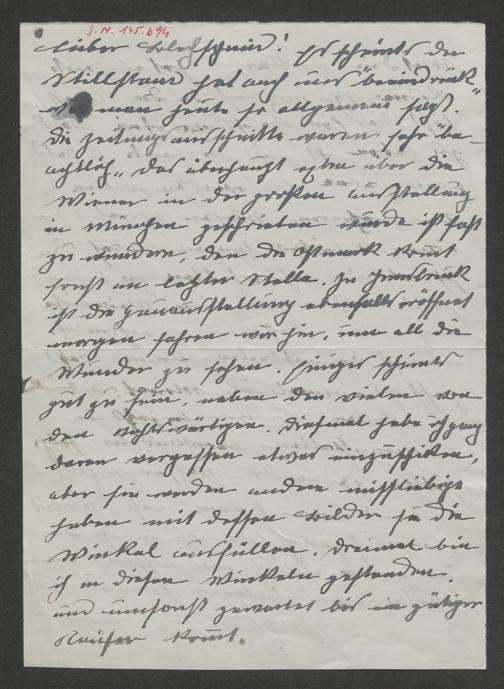 J.N. 145.694
Lieber Blochschmid! Es scheint der
Stillstand hat auch uns "beeindruckt"
man heute so allgemein sagt.
Die Zeitungsausschnitte waren sehr "be-
achtlich" das überhaupt extra über die
Wiener in der großen Ausstellung
in München geschrieben wurde ist fast
zu wundern, den die Ostmark kommt
sonst an letzter Stelle. Zu Innsbruck
ist die Gauausstellung ebenfalls eröffnet
morgen fahren wir hin, um all die
Wunder zu sehen. Einiges scheint
gut zu sein, neben den vielen von
den nichtswürtigen. Diesmal habe ich ganz
daran vergessen etwas einzuschiken,
aber sie werden andere missliebige
haben mit dessen Bilder sie die
Winkel ausfüllen. Dreimal bin
ich in diesen Winkeln gestanden.
und umsonst gewartet bis ein gütiger
Käufer kommt.